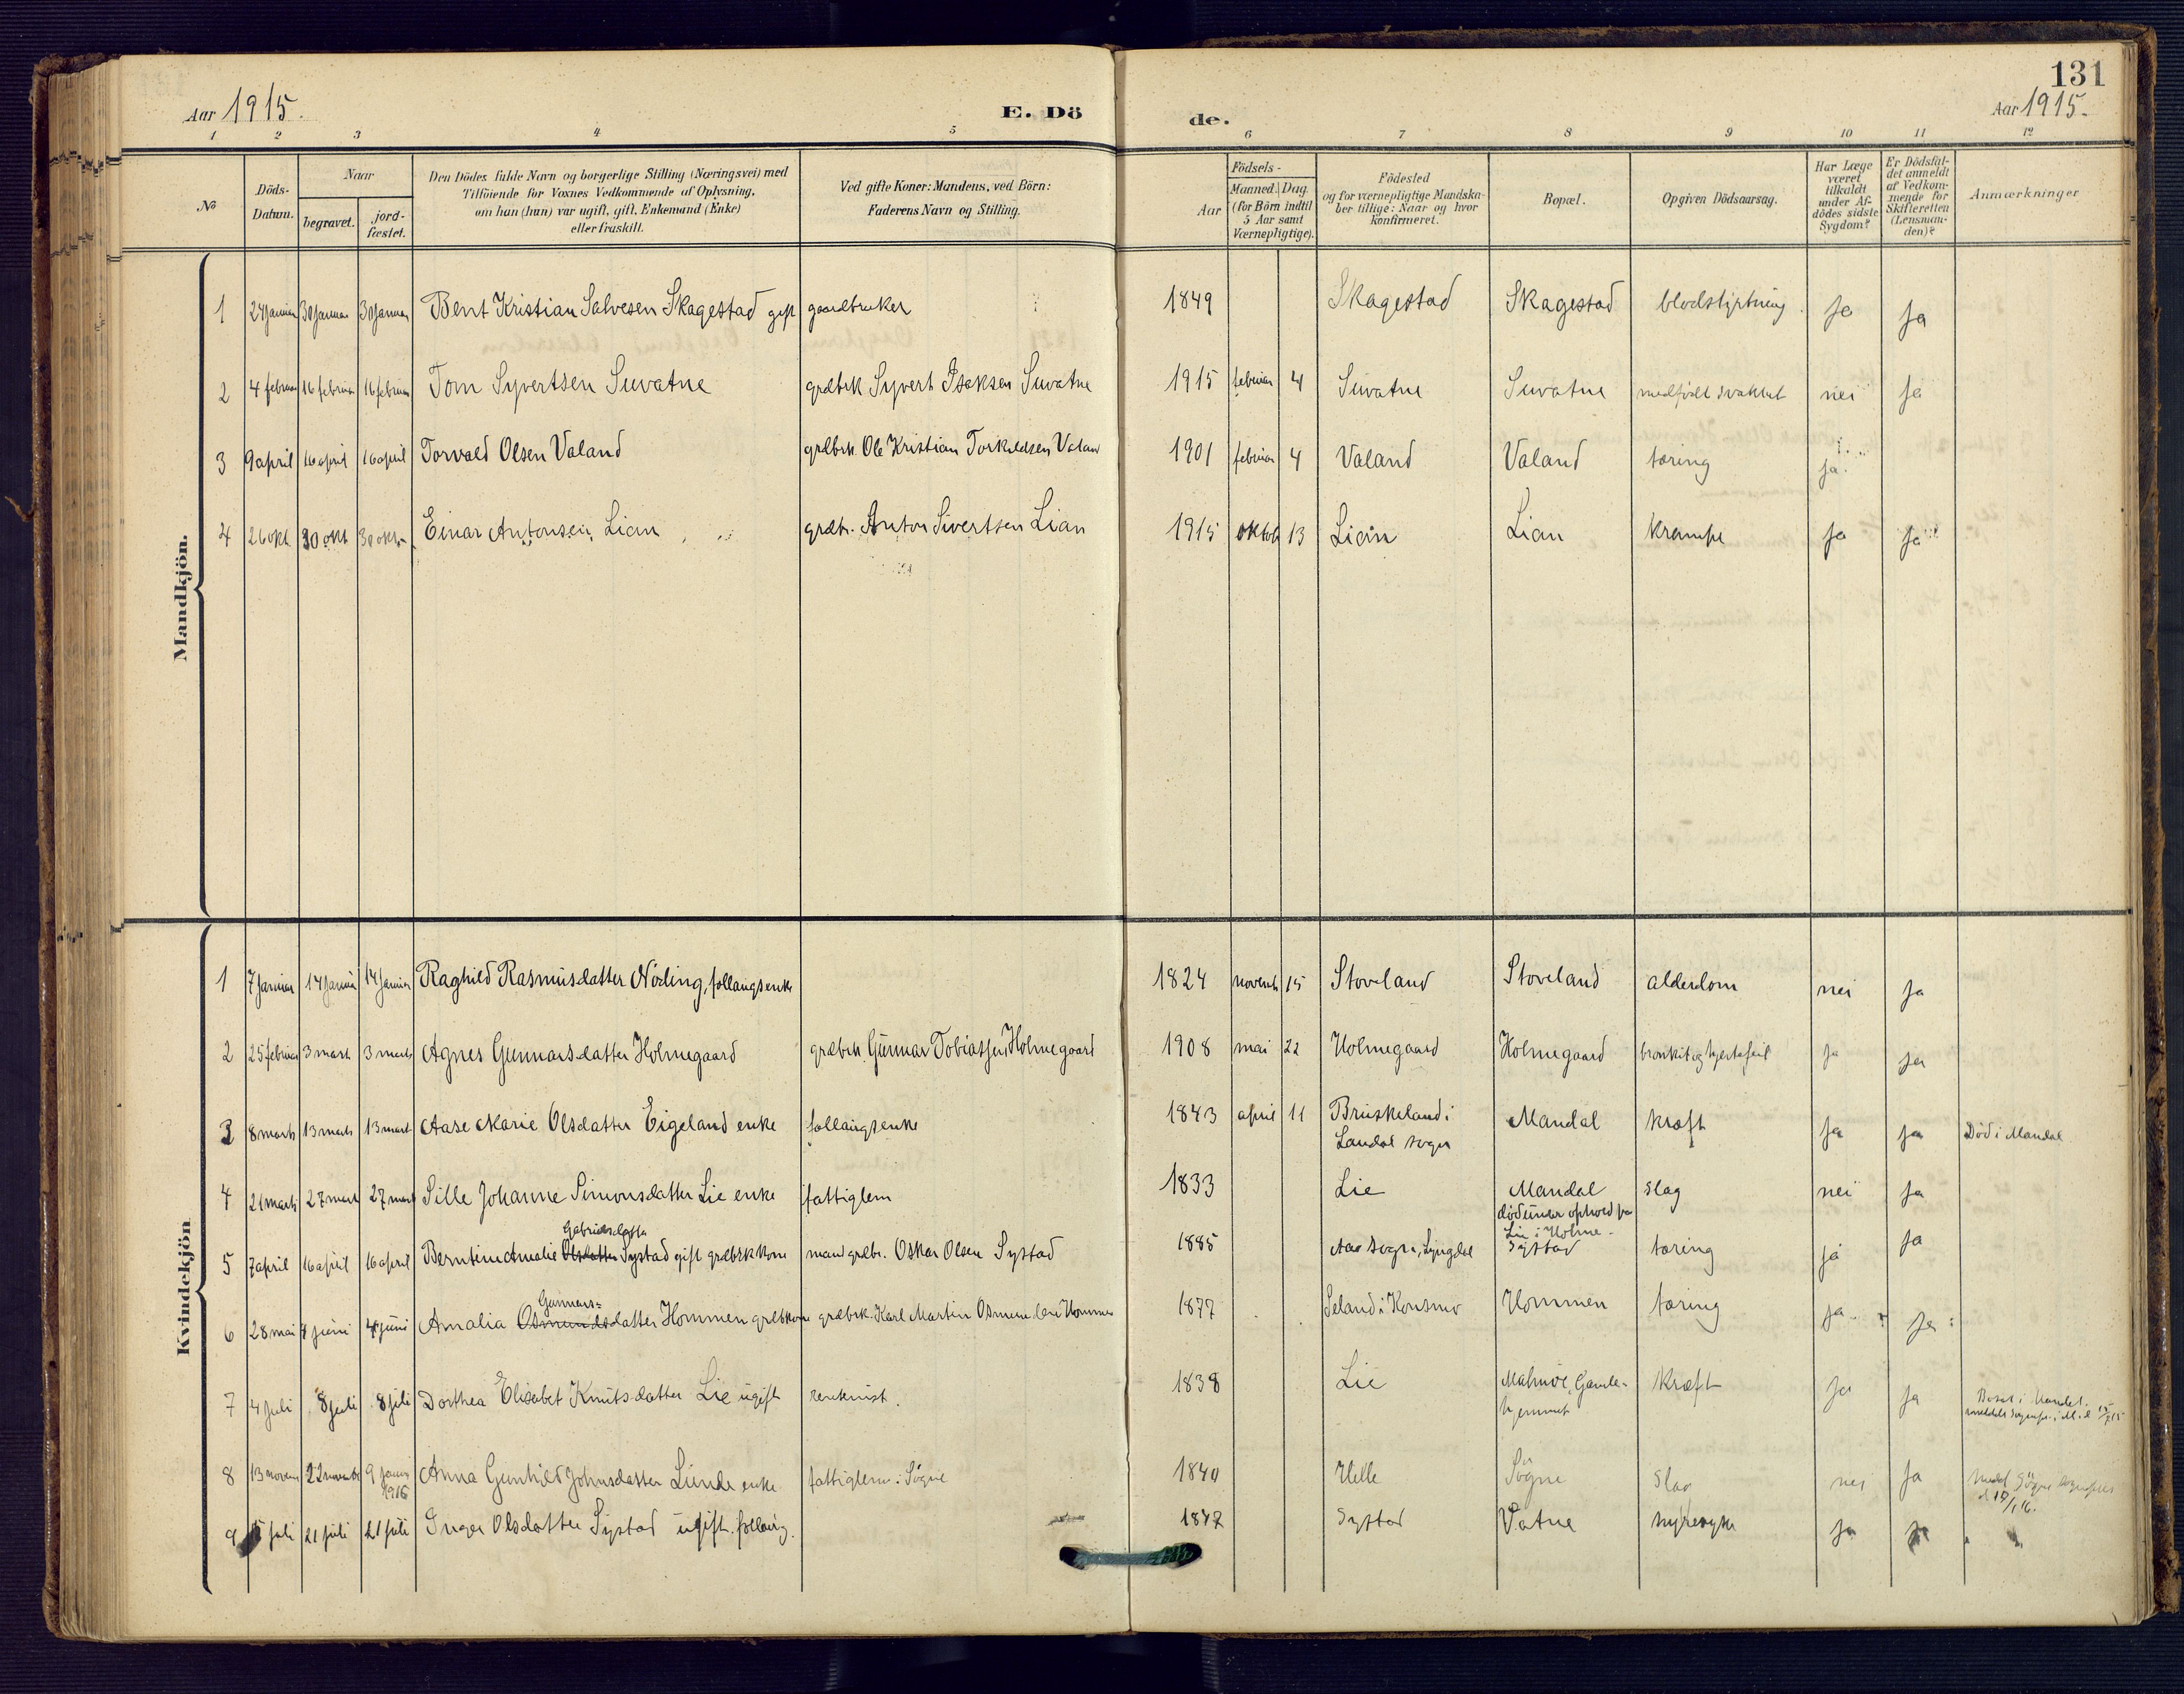 131
Aar 1915.
E. Dö
de.
Aar 1915.
1 2 3 4 5 6 7 8 9 10 11 12
No
Döds-
Datum.
Naar
begravet.
jord-
fæstet.
Den Dödes fulde Navn og borgerlige Stilling (Næringsvei) med
Tilföiende for Voxnes Vedkommende af Oplysning,
om han (hun) var ugift, gift, Enkemand (Enke)
eller fraskilt.
Ved gifte Koner: Mandens, ved Börn:
Faderens Navn og Stilling.
Aar
Födsels-
Maaned. Dag.
(for Börn indtil
5 Aar samt
Værnepligtige).
Födested
og for værnepligtige Mandska-
ber tillige: Naar og hvor
konfirmeret.
Bopæl.
Opgiven Dödsaarsag.
Har Læge
været
tilkaldt
under Af-
dödes sidste
Sygdom?
Er Dödsfal-
det anmeldt
af Vedkom-
mende for
Skifteretten
(Lensman-
den)?
Anmærkninger
Mandkjön.
1 24 januar 30 januar 30 januar Bent Kristian Salvesen Skagestad gift gaardbruker 1849 Skagestad Skagestad ja ja
2 4 februar 16 februar 16 februar Tom Syvertsen Suvatne grdbrk Syvert Isaksen Suvatne 1915 februar 4 Suvatne Suvatne medfødt svakhet nei ja
3 9 april 16 april 16 april Torvald Olsen Valand grdbrk. Ole Kristian Torkildsen Valand 1901 februar 4 Valand Valand tæring ja
4 26 okt 30 okt 30 okt Einar Antonsen Lian grdbr. Anton Sivertsen Lian 1915 oktob 13 Lian Lian krampe ja ja
Kvindekjön
1 7 januar 14 januar 14 januar Raghild Rasmusdatter Nöding, follaugsenke 1824 novemb 15 Stoveland Stoveland alderdom nei ja
2 25 februar 3 marts 3 marts Agnes Gunnarsdatter Holmegaard grdbrk. Gunnar Tobiassen Holmegaard 1908 mai 22 Holmegaard Holmegaard bronkit og hjertefeil ja ja
3 8 marts 13 marts 13 marts Aase Marie Olsdatter Eigeland enke follaugsenke 1843 april 11 Bruskeland i Mandal kræft ja ja Död i Mandal
Laudal sogn
4 21 marts 27 marts 27 marts Sille Johanne Simonsdatter Lie enke fattiglem 1833 Lie Mandal slag nei ja
död under ophold paa
Lie i Holme-
Gabrielsdatter
5 7 april 16 april 16 april Berntine Amalie Olsdatter Systad gift grdbrkkone mand grdbr. Oskar Olsen Systad 1885 Aas sogn, Lyngdal Systad tæring ja ja
Gunnars-
6 28 mai 4 juni 4 juni Amalia Osmundsdatter Hommen grdbkone grdbrk. Karl Martin Osmundsen Hommen 1877 Seland i Konsmo Hommen tæring ja ja
7 4 juli 8 juli 8 juli Dorthea Elisabet Knutsdatter Lie ugift rentenist. 1838 Lie Malmö, Gamle- kræft ja ja Bosat i Mandal.
hjemmet
8 13 novem 22 novemb 9 januar Anna Gunhild Johnsdatter Lunde enke fattiglem i Søgne 1840 Helle Søgne slag nei ja
1916
9 juli 21 juli 21 juli Inger Olsdatter Systad ugift. follaug. 1847 Systad Vatne nyresyke ja ja